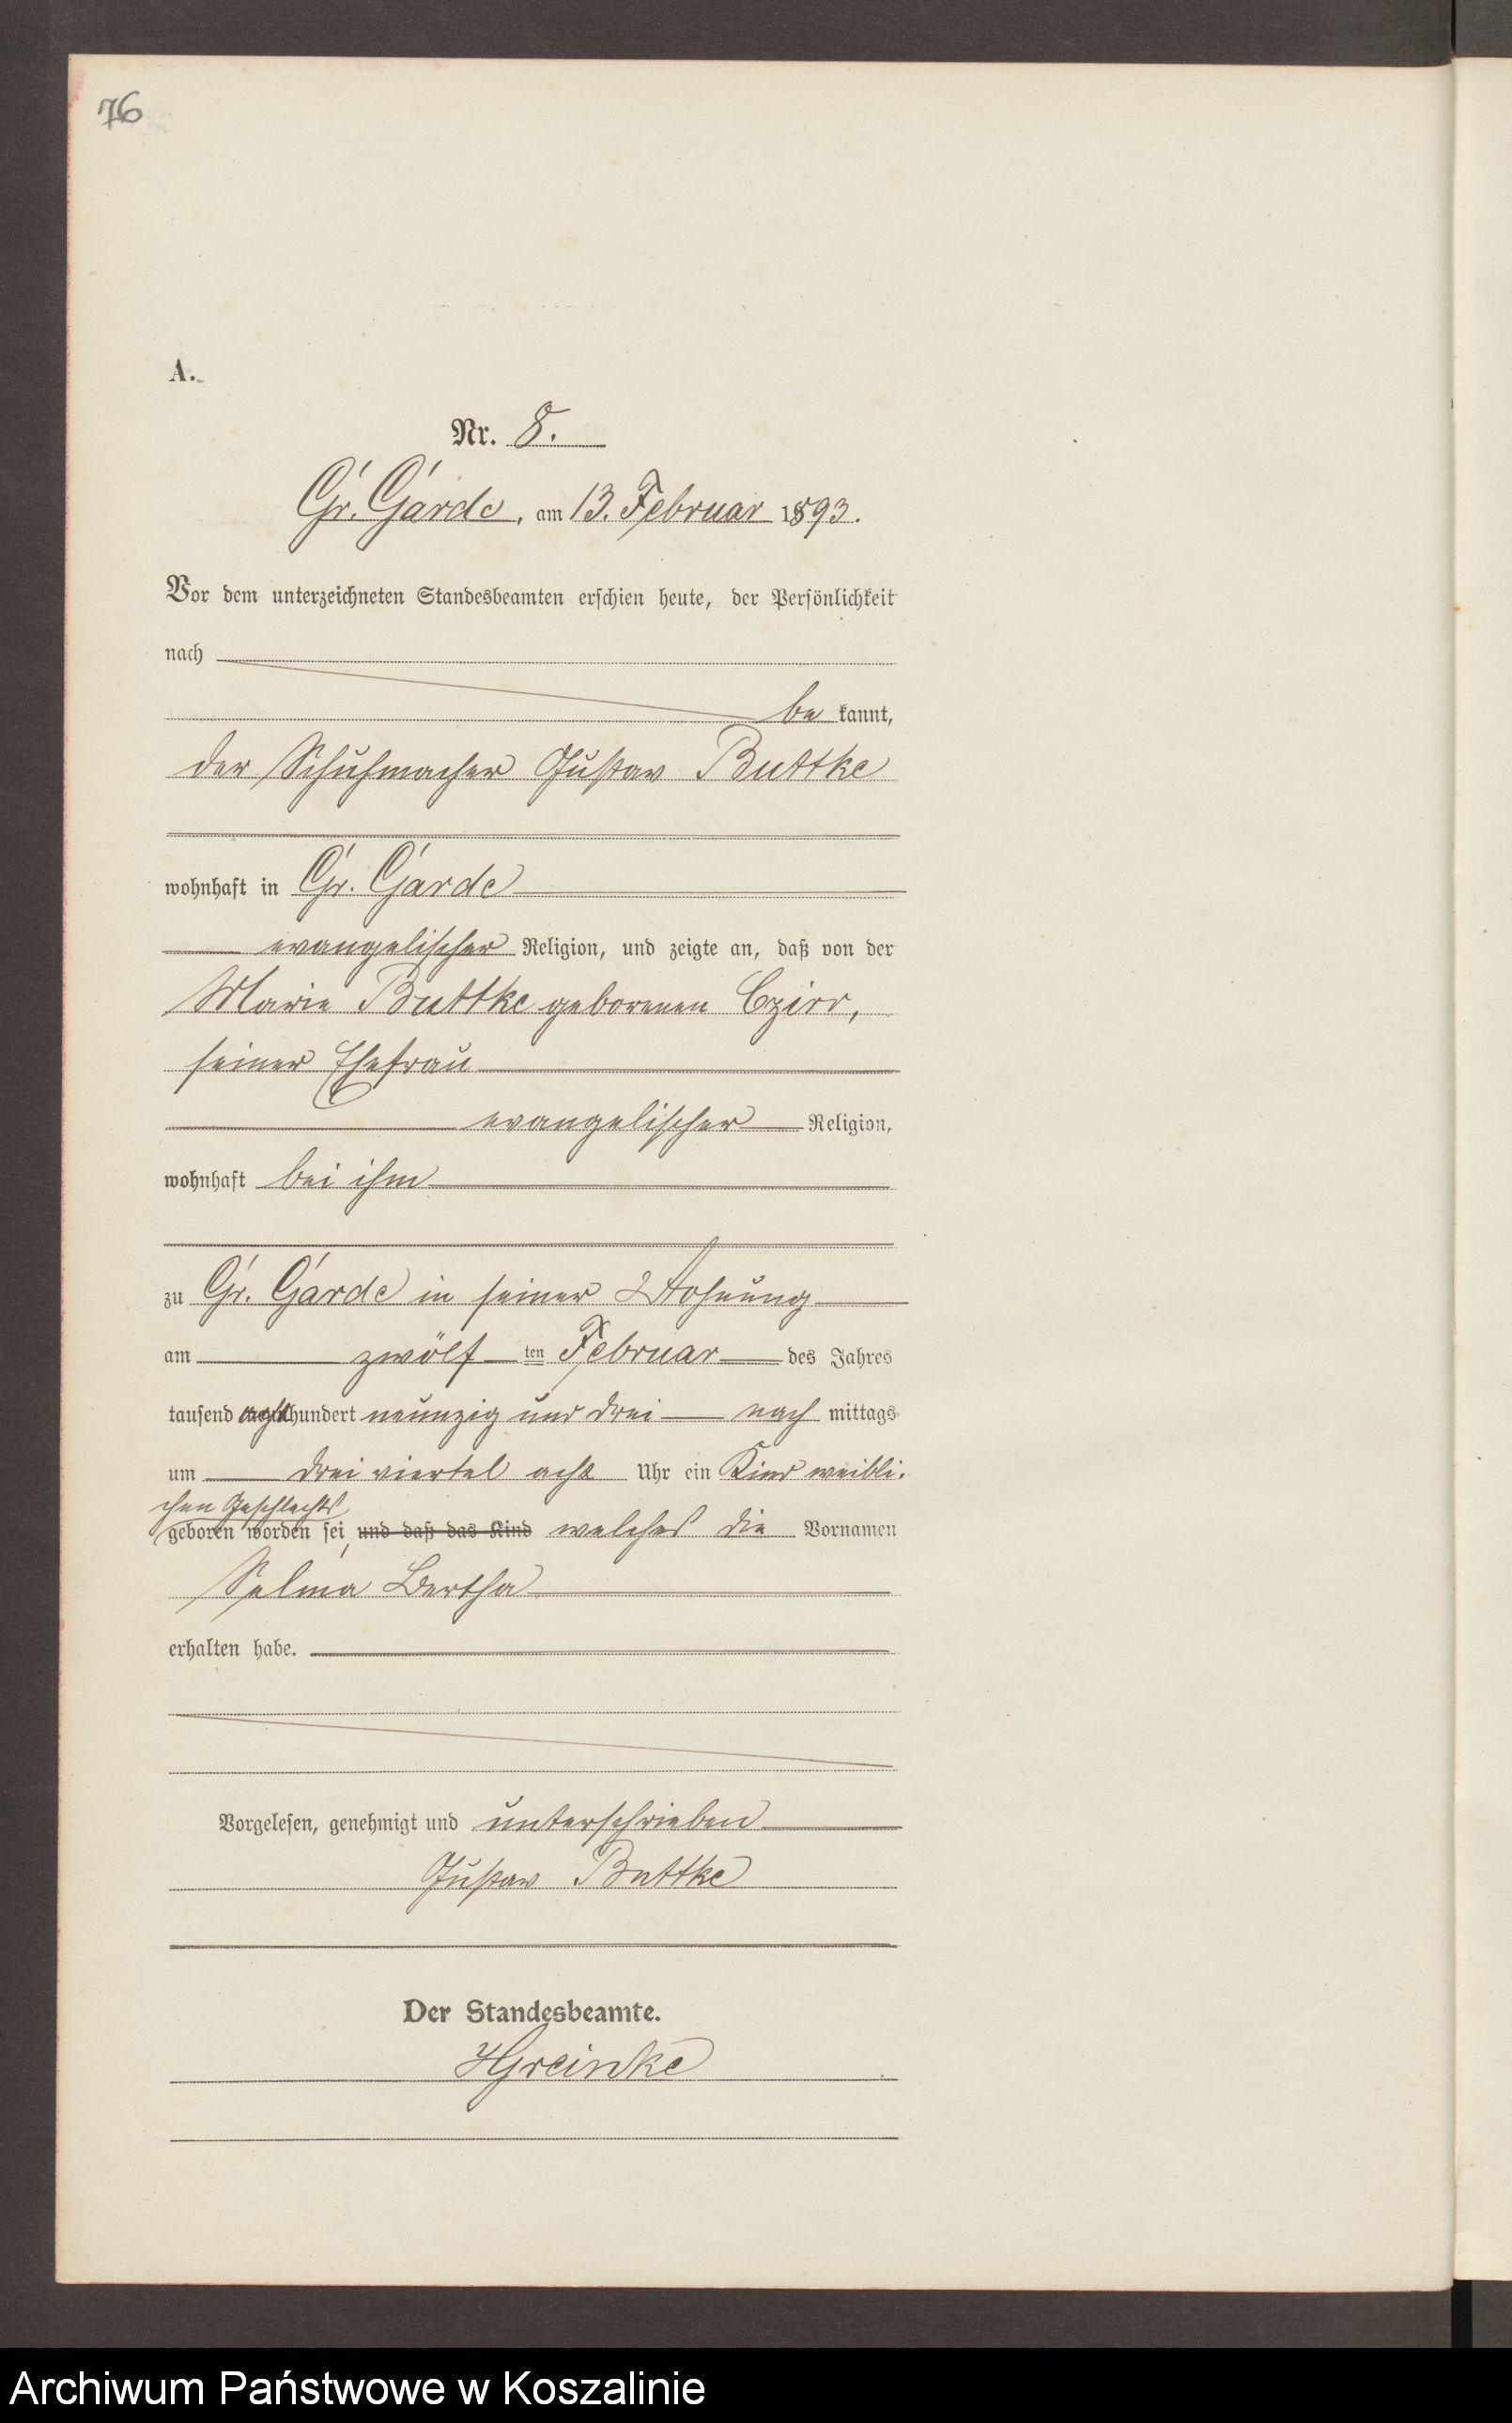 76
A.
Nr. 8.
Gr. Garde, am 13. Februar 1893.
Vor dem unterzeichneten Standesbeamten erschien heute, der Persönlichkeit
nach
be kannt,
der Schuhmacher Gustav Buttke
wohnhaft in Gr. Garde
evangelischer Religion, und zeigte an, daß von der
Marie Buttke geborenen Czirr,
seiner Ehefrau
evangelischer Religion,
wohnhaft bei ihm
zu Gr. Garde in seiner Wohnung
am zwölf ten Februar des Jahres
tausend achthundert neunzig und drei nach mittags
um drei viertel acht Uhr ein Kind weibli-
chen Geschlechts
geboren worden sei, und daß das Kind welches die Vornamen
Selma Bertha
erhalten habe.
Vorgelesen, genehmigt und unterschrieben
Gustav Buttke
Der Standesbeamte.
HGreinke
Archiwum Państwowe w Koszalinie